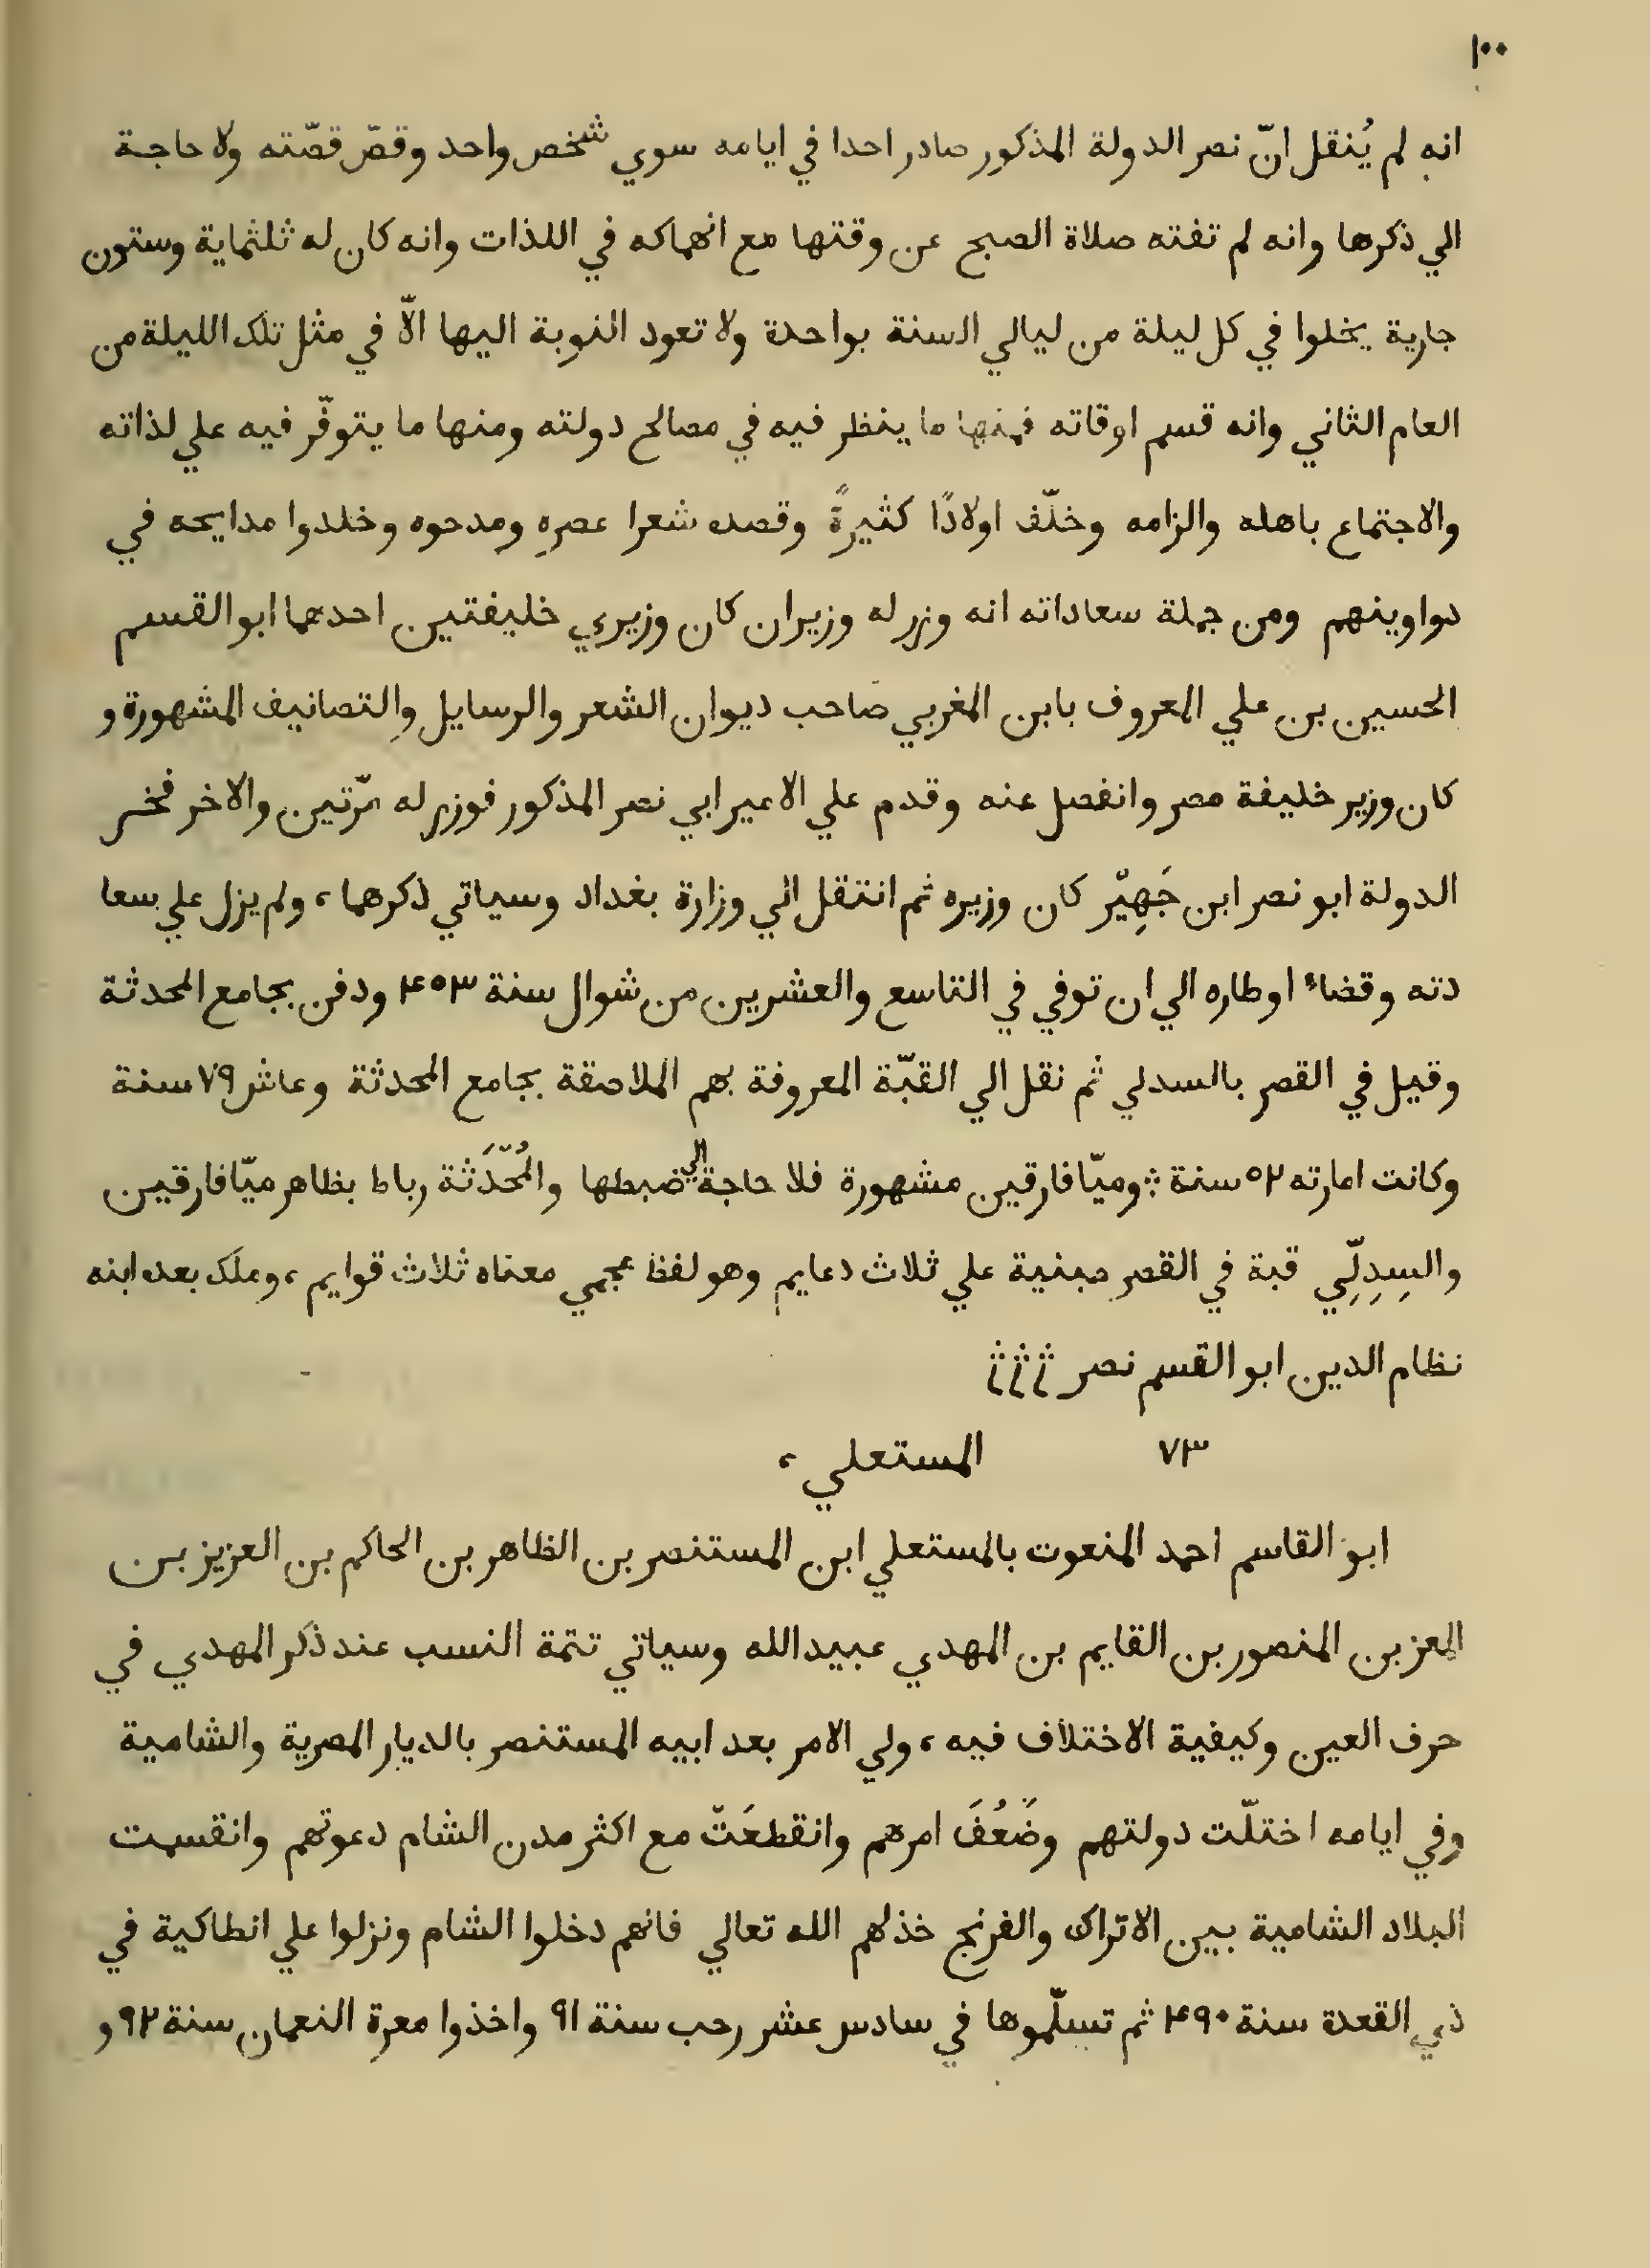 ١٠٠
انه لم يُنقل انّ نصر الدولة المذكور صادر احدا في ايامه سوي شخص واحد وقصّ قصّته ولا حاجة
الي ذكرها وانه لم تفته صلاة الصبح عن وقتها مع انهماكه في اللذات وانه كان له ثلثماية وستون
جارية يخلوا في كل ليلة من ليالي السنة بواحدة ولا تعود النوبة اليها الّا في مثل تلك الليلة من
العام الثاني وانه قسم اوقاته فمنها ما ينظر فيه في مصالح دولته ومنها ما يتوفّر فيه علي لذاته
والاجتماع باهله والزامه وخلّف اولادًا كثيرةً وقصده شعرا عصرهِ ومدحوه وخلدوا مدايحه في
دواوينهم ومن جملة سعاداته انه وزر له وزيران كان وزيري خليفتين احدهما ابو القسم
الحسين بن علي المعروف بابن المغربي صاحب ديوان الشعر والرسايل والتصانيف المشهورة و
كان وزير خليفة مصر وانفصل عنه وقدم علي الامير ابي نصر المذكور فوزر له مرّتين والاخر فخر
الدولة ابو نصر ابن جَهِيْر كان وزيره ثم انتقل الي وزارة بغداد وسياتي ذكرهما، ولم يزل علي سعا
دته وقضاء اوطاره الي ان توفي في التاسع والعشرين من شوال سنة ۴۵۳ ودفن بجامع المحدثة
وقيل في القصر بالسدلي ثم نقل الي القبّة المعروفة بهم الملاصقة بجامع المحدثة وعاش ٧٩ سنة
وكانت امارته ۵۲ سنة ؞ وميّافارقين مشهورة فلا حاجة الي ضبطها والمُحْدَثة رباط بظاهر ميّافارقين
والسِدِلّي قبة في القصر مبنية علي ثلاث دعايم وهو لفظ عجمي معناه ثلاث قوايم، وملك بعده ابنه
نظام الدين ابو القسم نصر ؞ ؞ ؞
٧٣ المستعلي،
ابو القاسم احمد المنعوت بالمستعلي ابن المستنصر بن الظاهر بن الحاكم بن العزيز بن
المعز بن المنصور بن القايم بن المهدي عبيد الله وسياتي تتمة النسب عند ذكر المهدي في
حرف العين وكيفية الاختلاف فيه، ولي الامر بعد ابيه المستنصر بالديار المصرية والشامية
وفي ايامه اختلّت دولتهم وضَعُفَ امرهم وانقطعَتْ مع اكثر مدن الشام دعوتهم وانقسمت
البلاد الشامية بين الاتراك والفرنج خذلهم الله تعالي فانهم دخلوا الشام ونزلوا علي انطاكية في
ذي القعدة سنة ۴٩٠ ثم تسلّموها في سادس عشر رجب سنة ٩١ واخذوا معرة النعمان سنة ٩٢ و